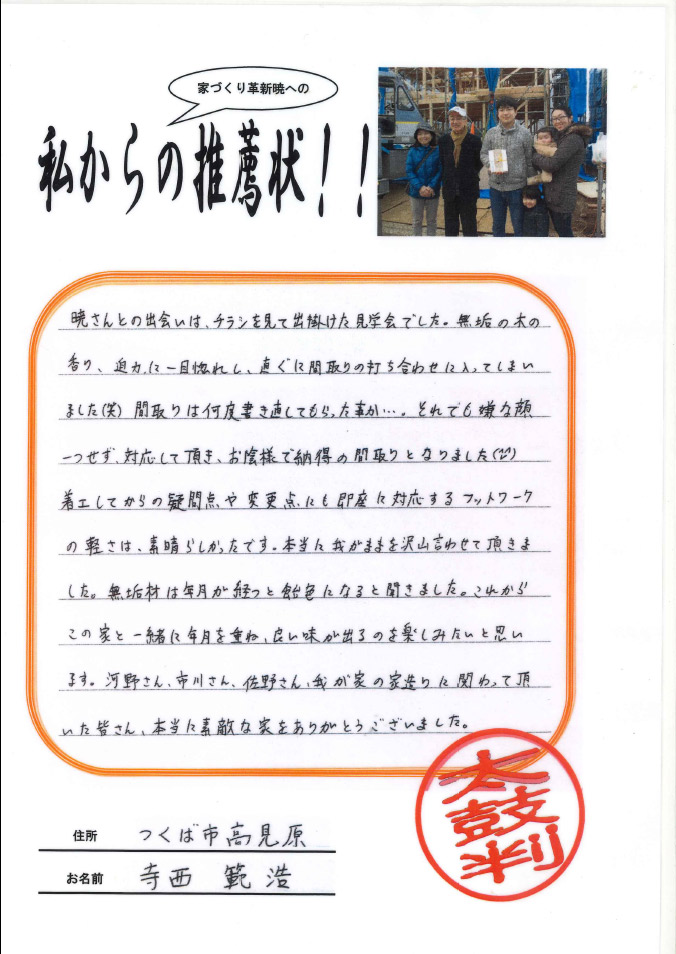 家づくり革新暁への
私からの推薦状！！
暁さんとの出会いは、チラシを見て出掛けた見学会でした。無垢の木の
香り、迫力に一目惚れし、直ぐに間取りの打ち合わせに入ってしまい
ました(笑) 間取りは何度書き直してもらった事か…。それでも嫌な顔
一つせず、対応して頂き、お陰様で納得の間取りとなりました(^^)
着工してからの疑問点や変更点にも即座に対応するフットワーク
の軽さは、素晴らしかったです。本当に我がままを沢山言わせて頂きま
した。無垢材は年月が経つと飴色になると聞きました。これから
この家と一緒に年月を重ね、良い味が出るのを楽しみたいと思い
ます。河野さん、市川さん、佐野さん、我が家の家造りに関わって頂
いた皆さん、本当に素敵な家をありがとうございました。
太鼓判
住所 つくば市高見原
お名前 寺西 範浩